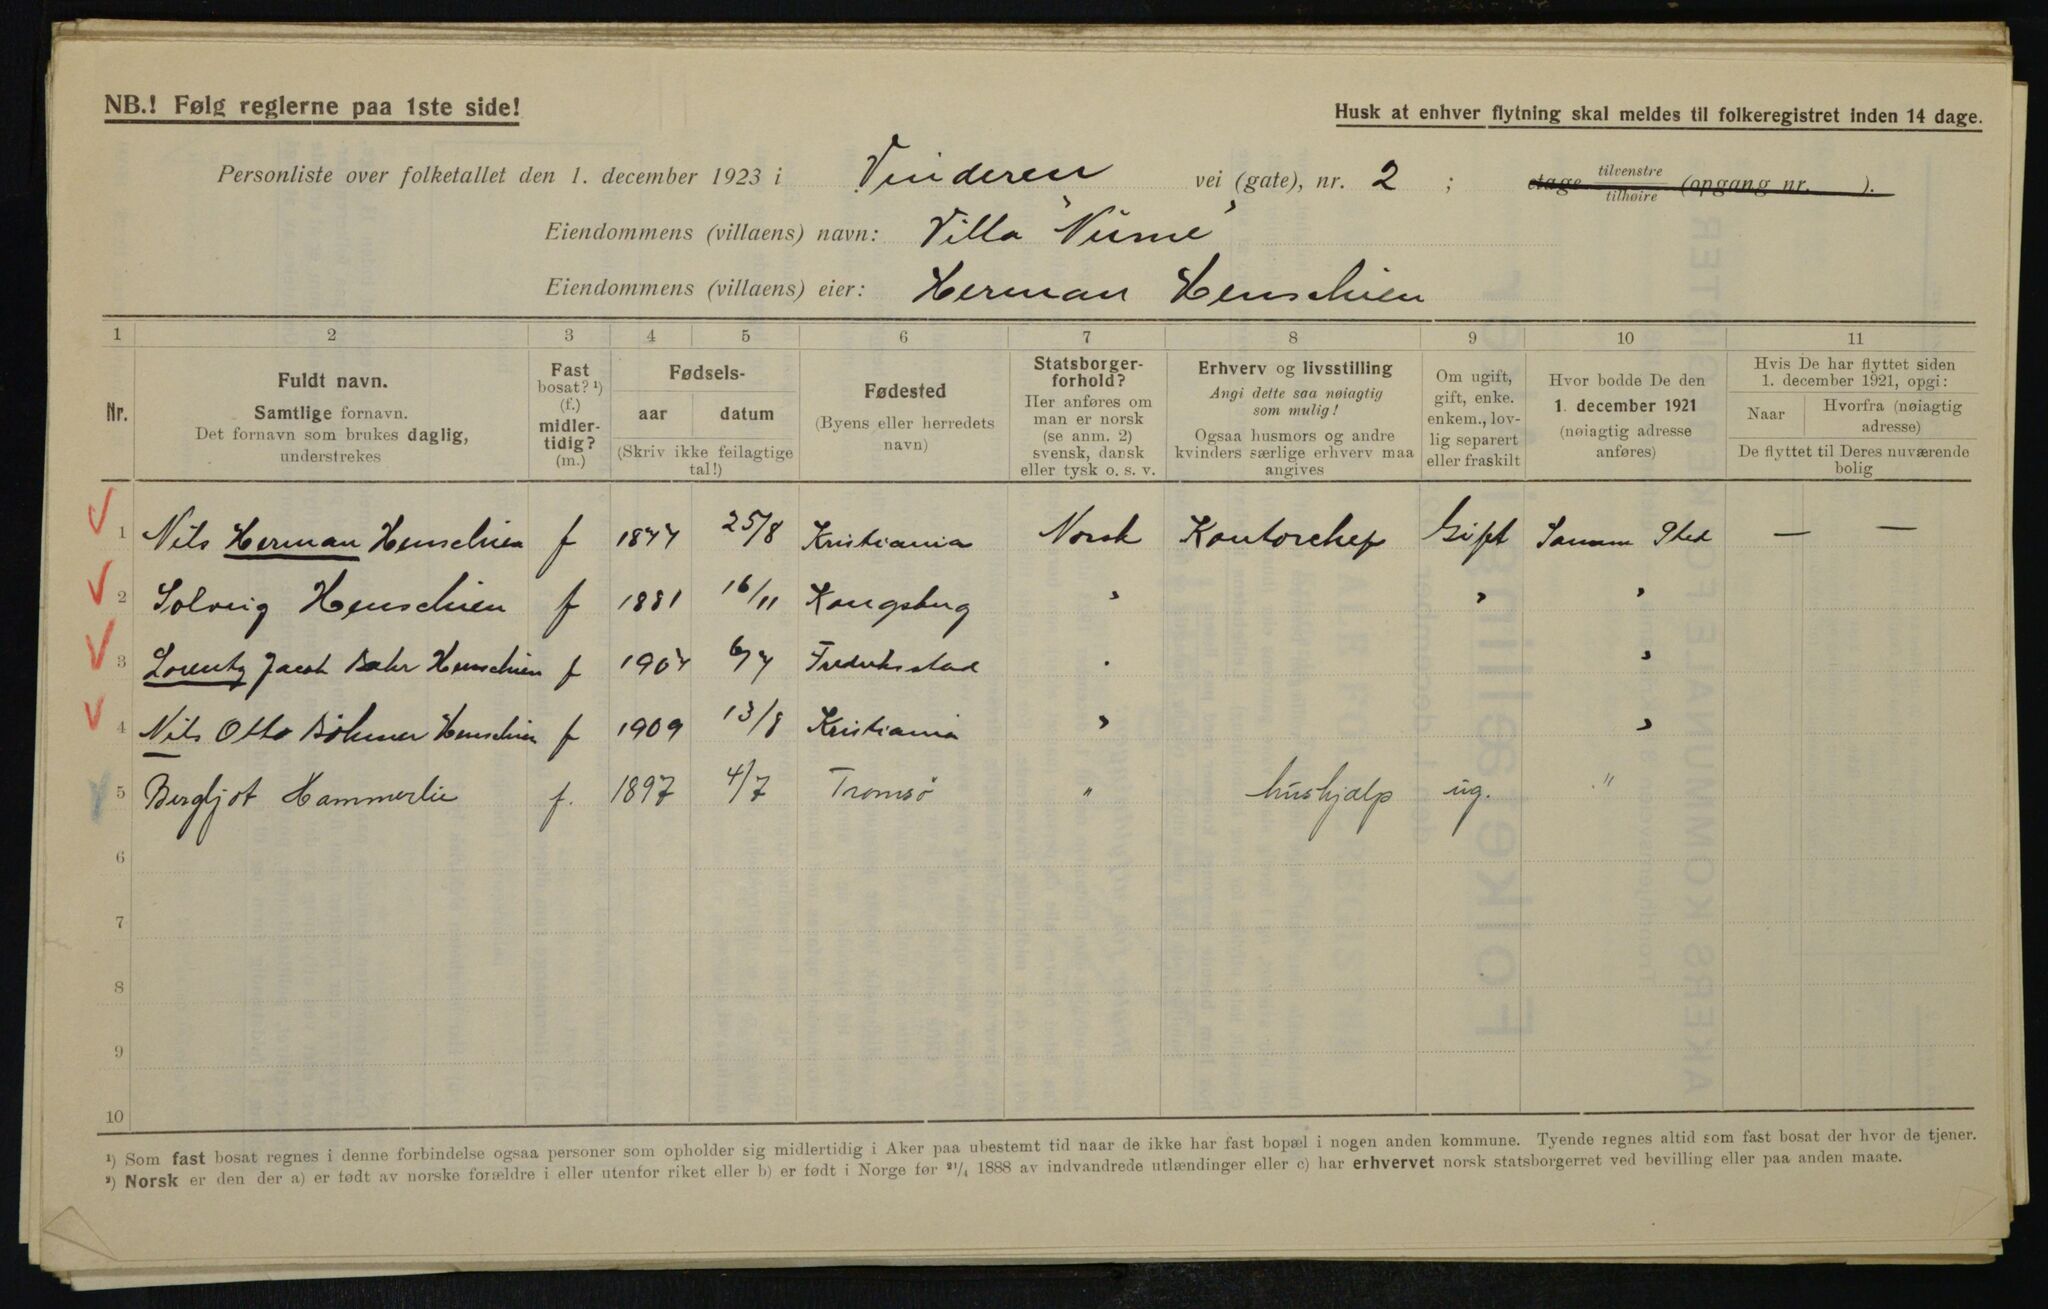 NB.! Følg reglerne paa 1ste side!
Husk at enhver flytning skal meldes til folkeregistret inden 14 dage.
Personliste over folketallet den 1. december 1923 i Vinderen vei (gate), nr. 2 ; etage tilvenstre tilhøire (opgang nr. ).
Eiendommens (villaens) navn: Villa
Eiendommens (villaens) eier: Herman Henschien
1 2 3 4 5 6 7 8 9 10 11
Nr.
Fuldt navn.
Samtlige fornavn.
Det fornavn som brukes daglig,
understrekes
Fast
bosat? ¹)
(f.)
midler-
tidig?
(m.)
Fødsels-
aar datum
(Skriv ikke feilagtige
tal!)
Fødested
(Byens eller herredets
navn)
Statsborger-
forhold?
Her anføres om
man er norsk
(se anm. 2)
svensk, dansk
eller tysk o. s. v.
Erhverv og livsstilling
Angi dette saa nøiagtig
som mulig!
Ogsaa husmors og andre
kvinders særlige erhverv maa
angives
Om ugift,
gift, enke.
enkem., lov-
lig separert
eller fraskilt
Hvor bodde De den
1. december 1921
(nøiagtig adresse
anføres)
Hvis De har flyttet siden
1. december 1921, opgi:
Naar
Hvorfra (nøiagtig
adresse)
De flyttet til Deres nuværende
bolig
1 Nils Herman Henschien f 1877 25/8 Kristiania Norsk Kontorchef Gift Samme Sted — —
2 Solveig Henschien f 1881 16/11 Kongsberg " " "
3 Lorentz Jacob Henschien f 1907 6/7 Fredriksstad " "
4 Nils Otto Böhmer Henschien f 1909 13/8 Kristiania " "
5 Bergljot Hammerlie f. 1897 4/7 Tromsø " hushjælp ug. "
6
7
8
9
10
¹) Som fast bosat regnes i denne forbindelse ogsaa personer som opholder sig midlertidig i Aker paa ubestemt tid naar de ikke har fast bopæl i nogen anden kommune. Tyende regnes altid som fast bosat der hvor de tjener.
²) Norsk er den der a) er født av norske forældre i eller utenfor riket eller b) er født i Norge før ²¹/₄ 1888 av indvandrede utlændinger eller c) har erhvervet norsk statsborgerret ved bevilling eller paa anden maate.